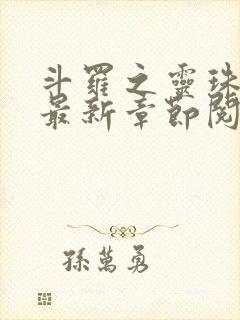 斗羅之靈珠
最新章節閱
孫萬勇